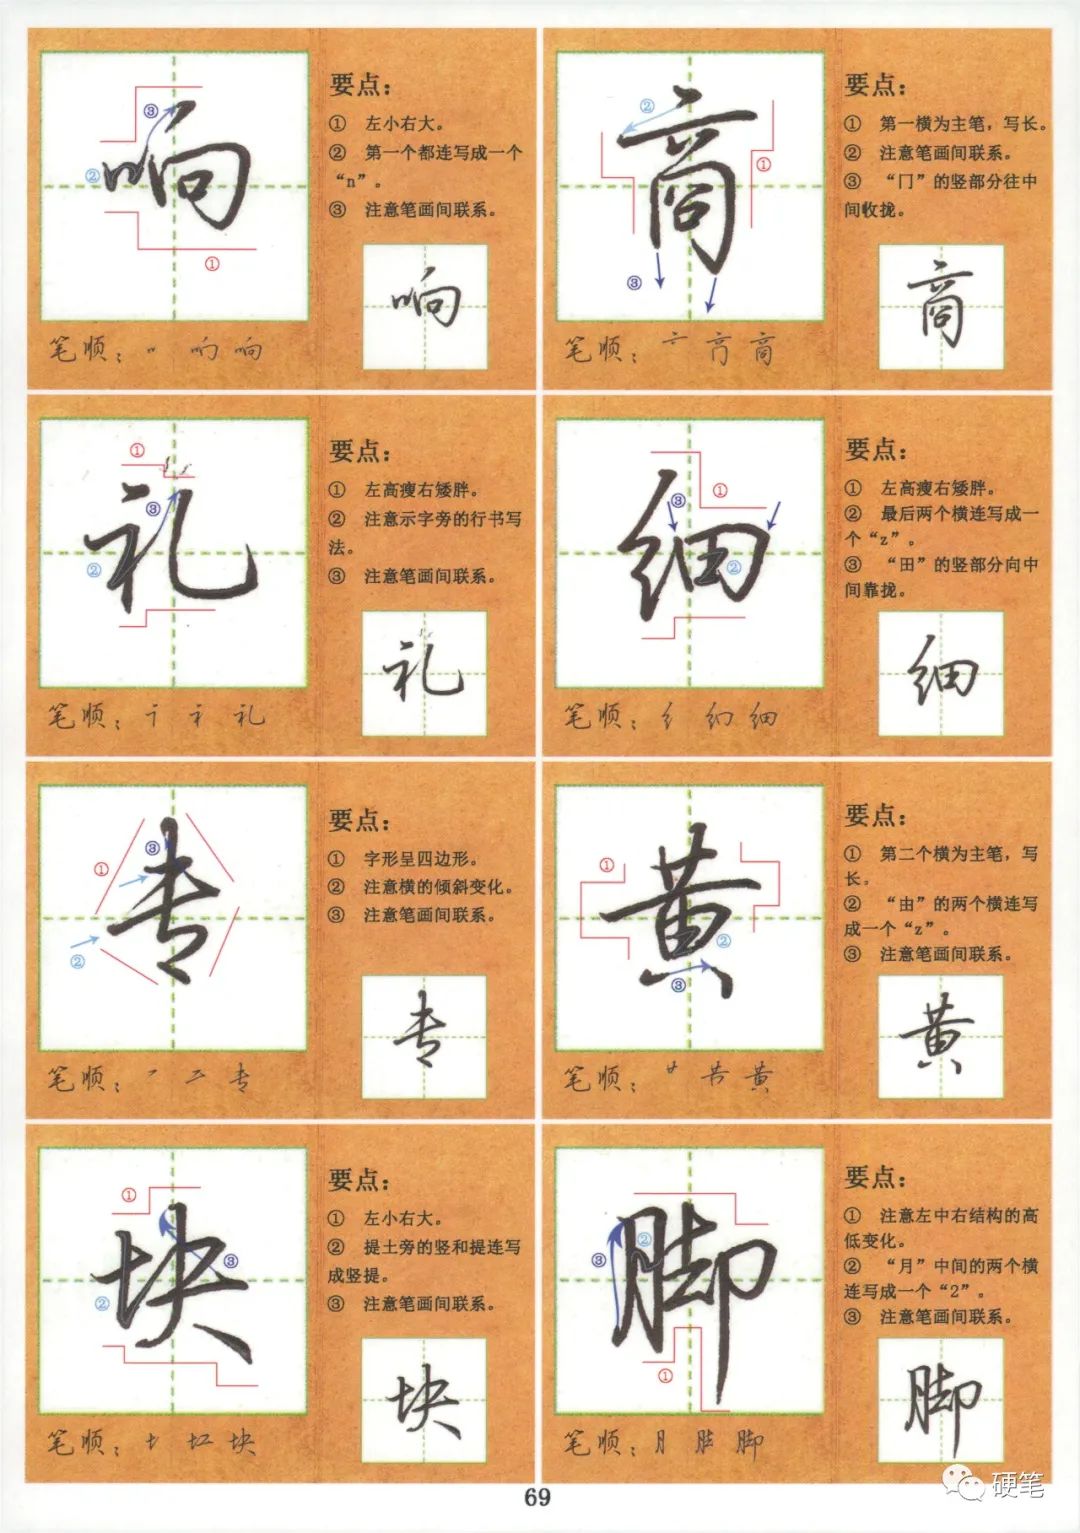 响
要点：
① 左小右大。
② 第一个都连写成一个
“n”。
③ 注意笔画间联系。
响
笔顺：响
商
要点：
① 第一横为主笔，写长。
② 注意笔画间联系。
③ “冂”的竖部分往中
间收拢。
商
笔顺：商
礼
要点：
① 左高瘦右矮胖。
② 注意示字旁的行书写
法。
③ 注意笔画间联系。
礼
笔顺：礼
细
要点：
① 左高瘦右矮胖。
② 最后两个横连写成一
个“z”。
③ “田”的竖部分向中
间靠拢。
细
笔顺：细
专
要点：
① 字形呈四边形。
② 注意横的倾斜变化。
③ 注意笔画间联系。
专
笔顺：专
黄
要点：
① 第二个横为主笔，写
长。
② “由”的两个横连写
成一个“z”。
③ 注意笔画间联系。
黄
笔顺：黄
块
要点：
① 左小右大。
② 提土旁的竖和提连写
成竖提。
③ 注意笔画间联系。
块
笔顺：块
脚
要点：
① 注意左中右结构的高
低变化。
② “月”中间的两个横
连写成一个“2”。
③ 注意笔画间联系。
脚
笔顺：月 脚
69
硬笔